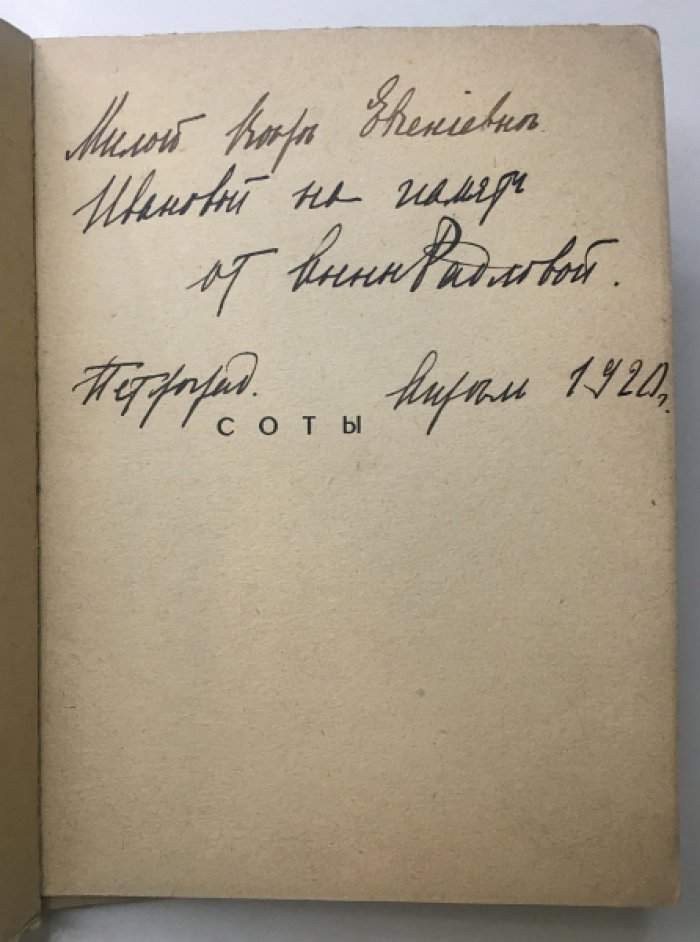 Милой Вѣрѣ Евгеніевнѣ
Ивановой на память
от Анны Радловой.
Петроград. Апрель 1920 г.
СОТЫ